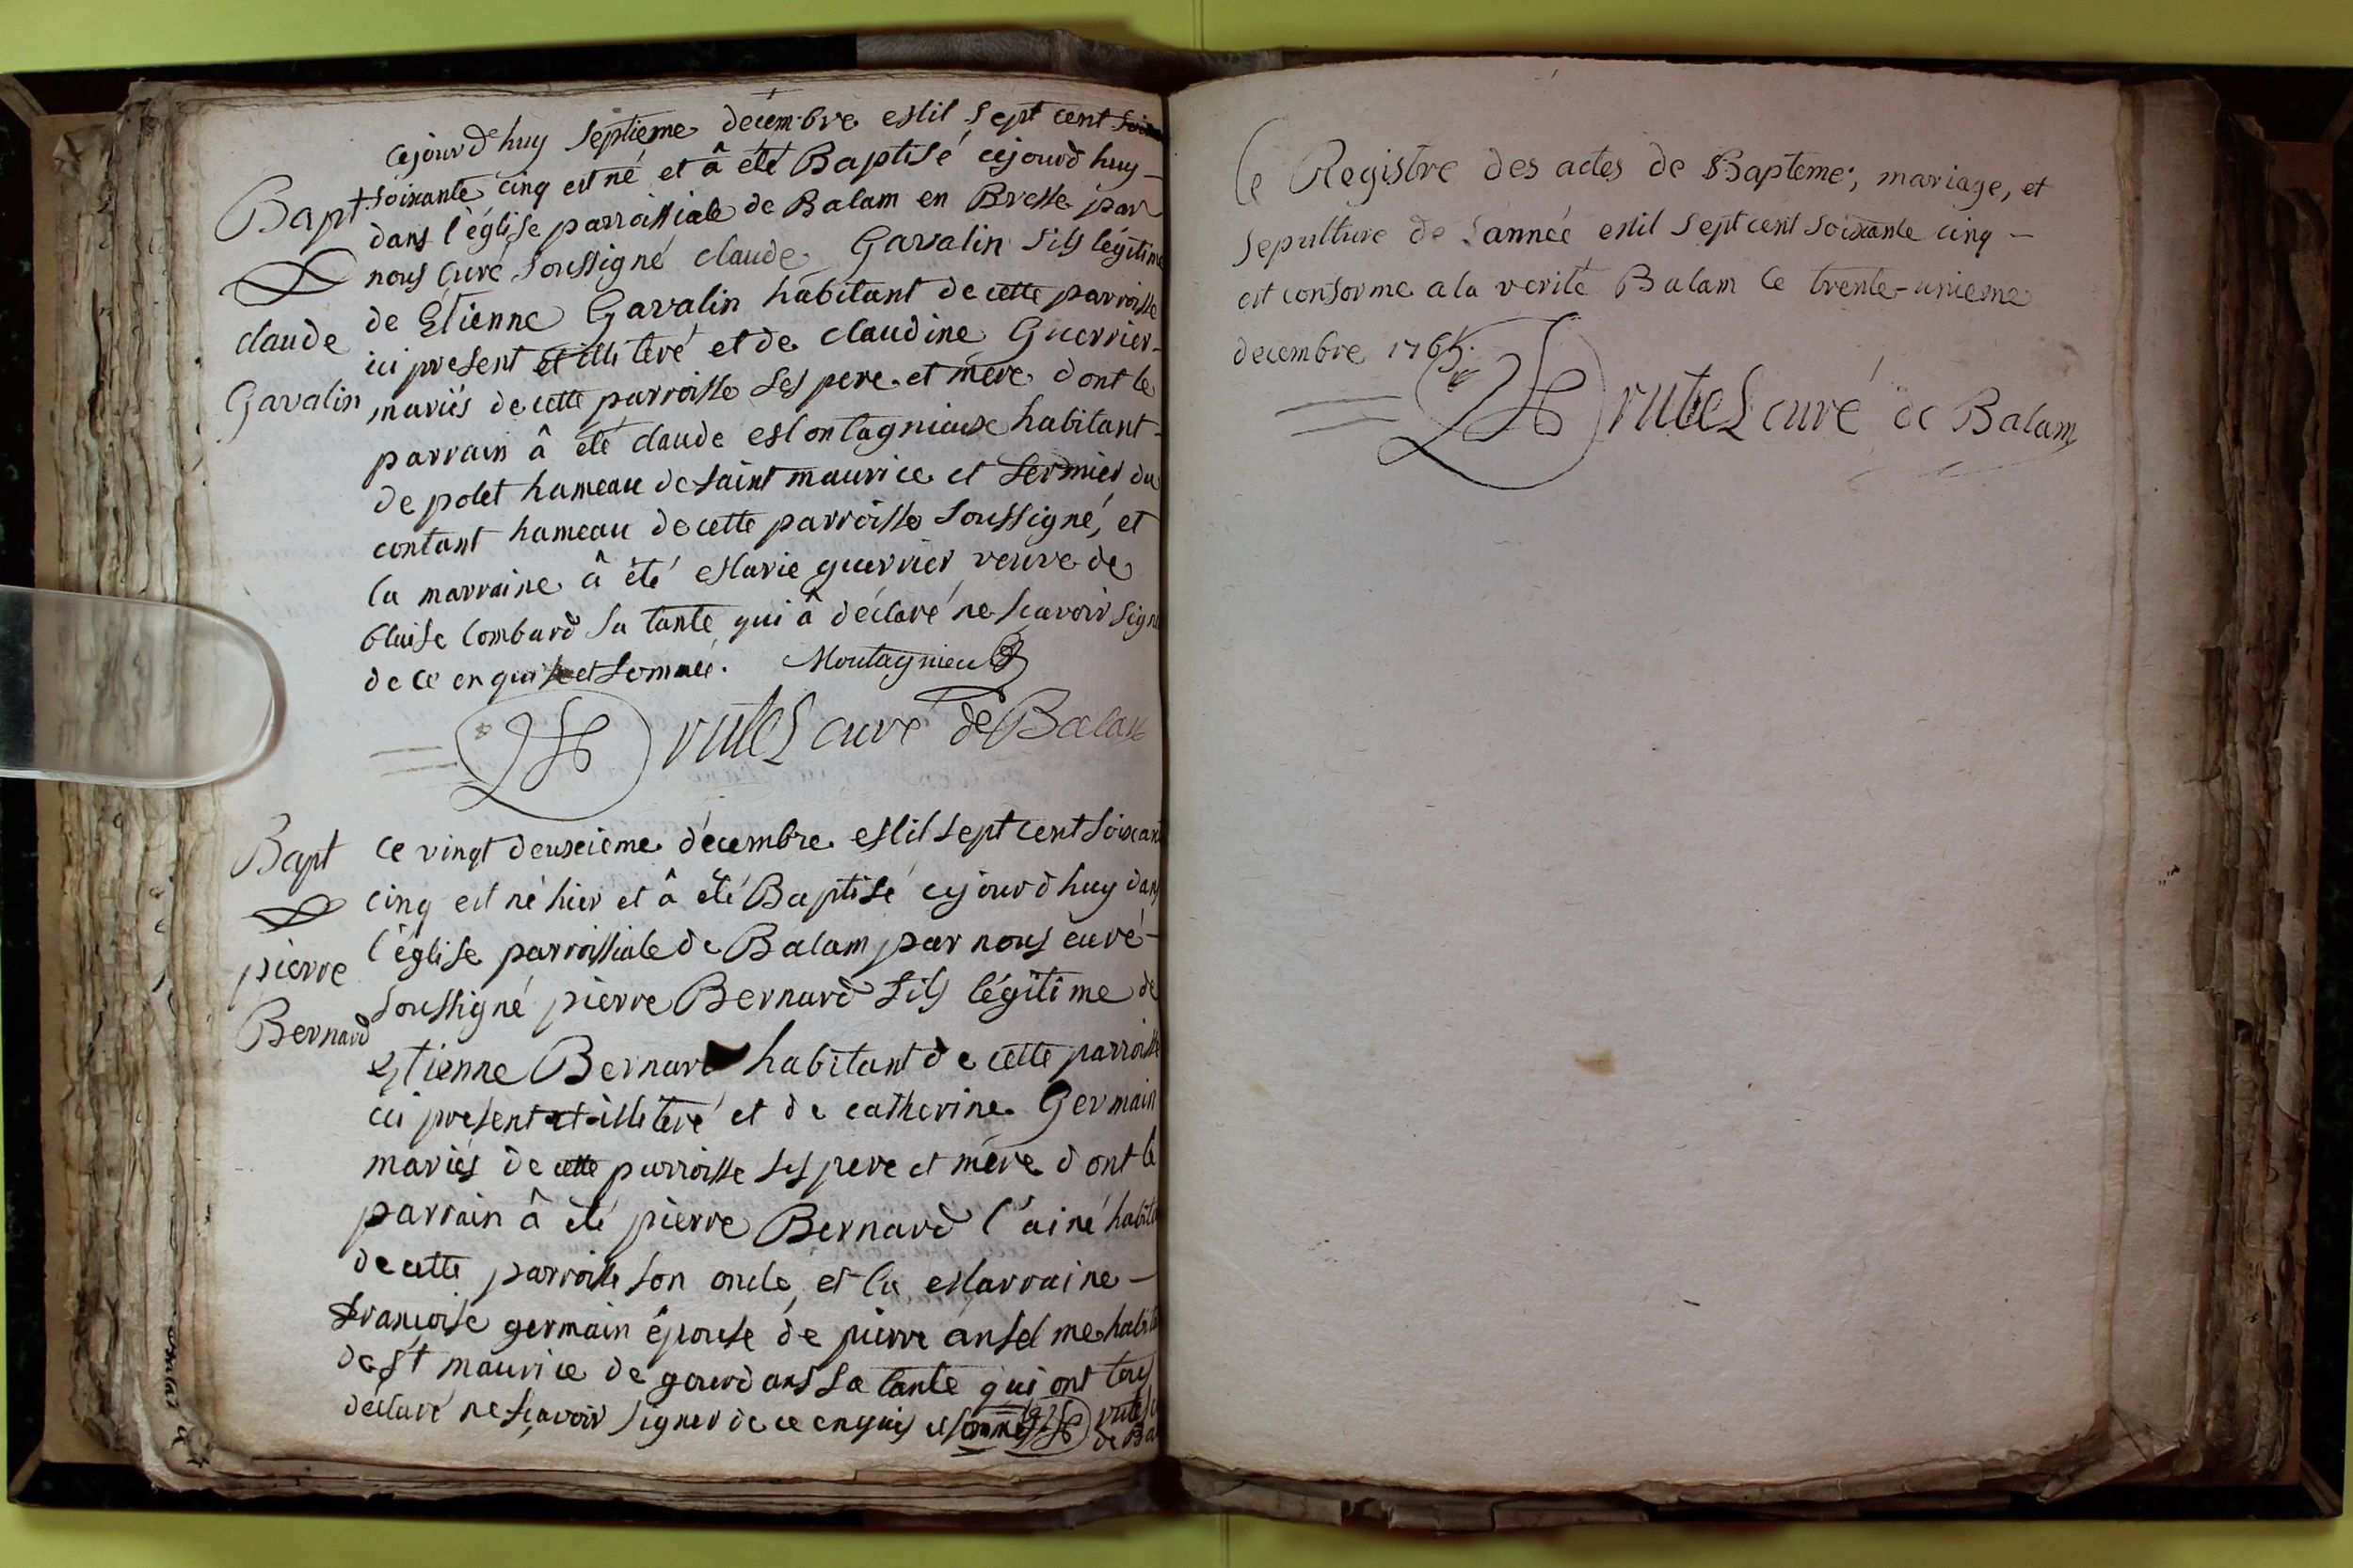 cejourd'huy septieme décembre Mil sept cent
Bapt
soixante cinq est né et â été Baptisé cejourd huy -
dans l'église parroissiale de Balam en Bresse par
nous curé soussigné claude Gavalin fils légitime
de Etienne Gavalin habitant de cette parroisse
claude
ici present et illiteré et de claudine Guerrier -
Gavalin
mariés de cette parroisse ses pere et mére dont le
parrain â été claude Montagnieux habitant -
de polet hameau de saint maurice et fermier du
contant hameau de cette parroisse soussigné, et
la marraine â été Marie guerrier veuve de
blaise Lombard sa tante qui â déclaré ne scavoir signe
de ce enquise et sommée. Montagnieu
rutes curé de Balam
Bapt
ce vingt deuxieme décembre Mil sept cent soixant
cinq est né hier et â été Baptisé cejourd huy dans
l'église parroissiale de Balam par nous curé -
pierre
soussigné pierre Bernard fils légitime de
Bernard
Etienne Bernard habitant de cette parroisse
ici present et illiteré et de catherine Germain
mariés de cette parroisse ses pere et mére dont le
parrain â été pierre Bernard l'ainé habita
de cette parroisse son oncle, et la Marraine -
francoise germain épouse de pierre anselme habit
de st maurice de gourdans sa tante qui ont tous
déclaré ne scavoir signer de ce enquis et sommés rutes cu
de Ba
Le Registre des actes de Bapteme, mariage, et
sepulture de l'année Mil sept cent soixante cinq -
est conforme a la verité Balam le trente-unieme
decembre 1765.
rutes curé de Balam